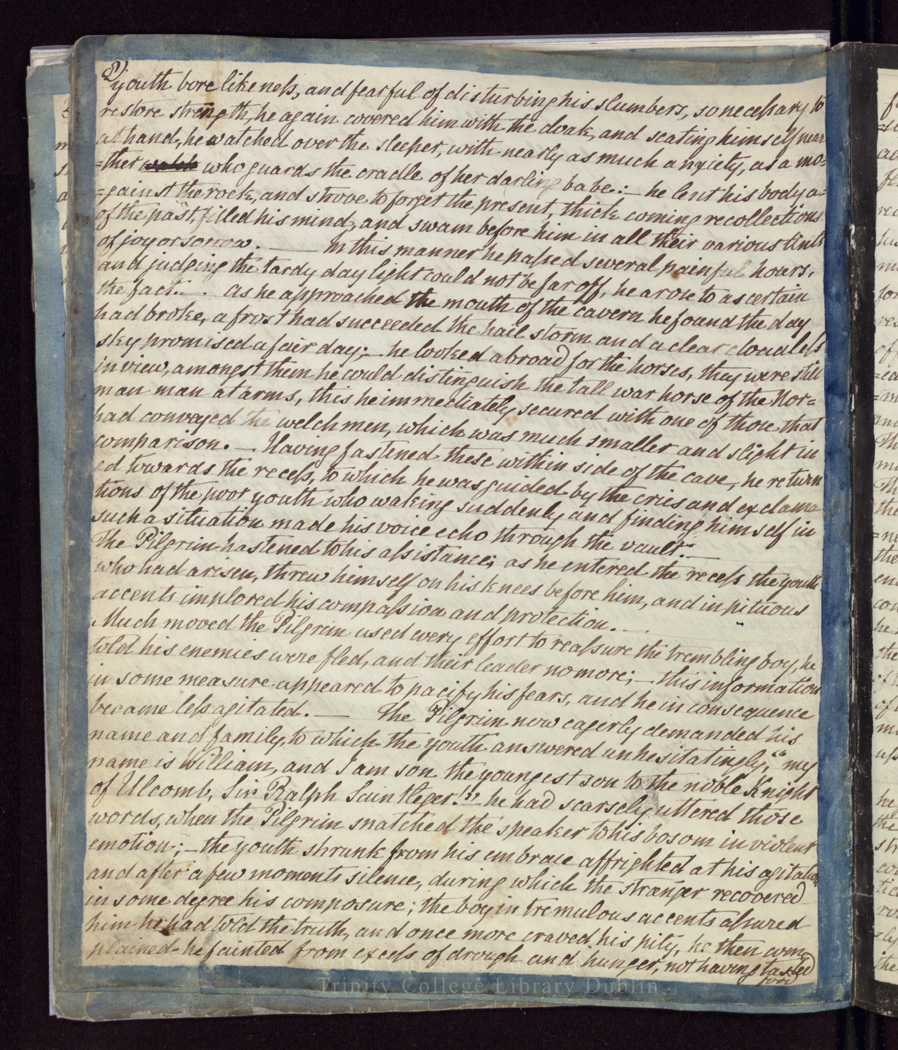 8V.
youth bore likeness, and fearful of disturbing his slumbers, so necessary to
restore strength, he again covered him with the cloak, and seating himself near
at hand, he watched over the sleeper, with nearly as much anxiety, as a mo-
=ther who guards the cradle of her darling babe:- he lent his body a-
=gainst the rock, and strove to forget the present, thick coming recollections
of the past, filled his mind, and swam before him in all their various tints
of joy or sorrow. — In this manner he passed several painful hours,
and judging the tardy day light could not be far off, he arose to ascertain
the fact:-. as he approached the mouth of the cavern he found the day
had broke, a frost had succeeded the hail storm and a clear cloudless
sky promised a fair day;- he looked abroad for the horses, they were still
in view, amongst them he could distinguish the tall war horse of the Nor=
man man at arms, this he immediately secured with one of those that
had conveyed the welchmen, which was much smaller and slight in
comparison. — Having fastened these within side of the cave, he return
ed towards the recess, to which he was guided by the cries and exclama-
tions of the poor youth who waking suddenly and finding himself in
such a situation made his voice echo through the vault:-
The Pilgrim hastened to his assistance; as he entered the recess the youth
who had arisen, threw himself on his knees before him, and in pituous
accents implored his compassion and protection. —
Much moved the Pilgrim used every effort to reassure the trembling boy, he
told his enemies were fled, and their leader no more;- this information
in some measure appeared to pacify his fears, and he in consequence
became less agitated. — The Pilgrim now eagerly demanded his
name and family, to which the youth answered unhesitatingly, "my
name is William, and I am son the youngest son to the noble Knight
of Ulcomb, Sir Ralph Saintleger:"- he had scarsely uttered those
words, when the Pilgrim snatched the speaker to his bosom in violent
emotion;- the youth shrunk from his embrace affrighted at his agitation
and after a few moments silence, during which the stranger recovered
in some degree his composure; the boy in tremulous accents assured
him he had told the truth, and once more craved his pity, he then com
plained he fainted from excess of drough and hunger, not having tasted
food
Trinity College Library Dublin